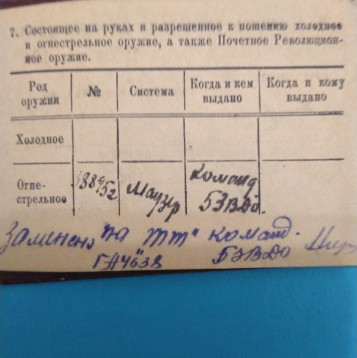 7. Состоящее на руках и разрешенное к ношению холодное
и огнестрельное оружие, а также Почетное Революцион-
ное оружие.
Род оружии № Система Когда и кем выдано Когда и кому выдано
Холодное
Огне-стрельное Маузер Команд БЭВДО.
Заменено на "ТТ" команд.
ГА 4638 БЭВДО